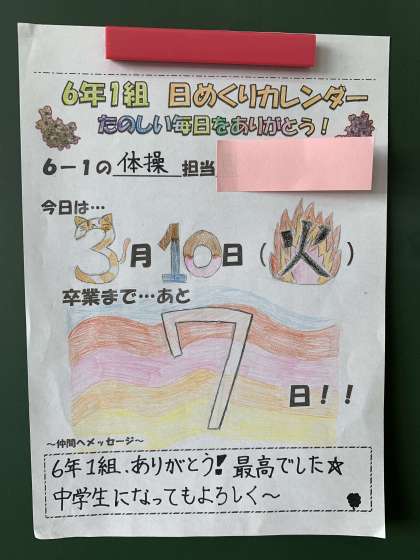 6年1組 日めくりカレンダー
たのしい毎日をありがとう！
6－1の体操担当
今日は…
3月10日（火）
卒業まで…あと
7日！！
～仲間へメッセージ～
6年1組、ありがとう！最高でした☆
中学生になってもよろしく～